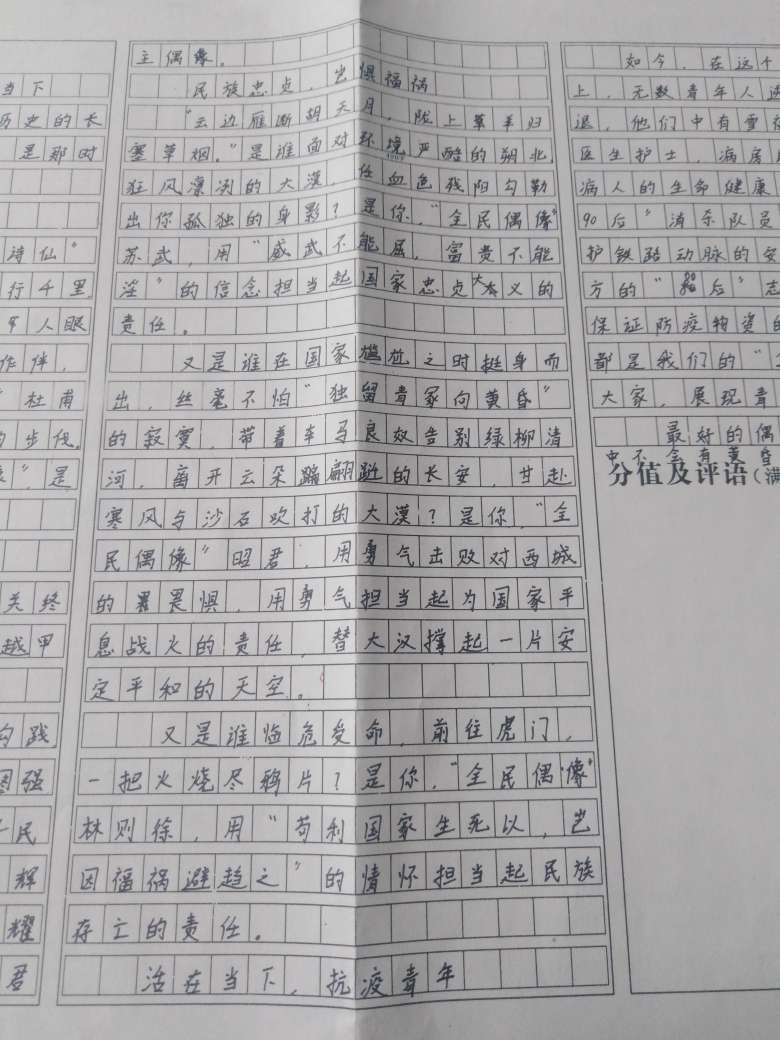 当下
历史的长
是那时
诗仙”
行千里
人眼
作伴，
杜甫
的步伐。
”，是
关终
越甲
勾践
图强
民
辉
耀
君
主偶像。
民族忠贞，岂惧福祸
“云边雁断胡天月，陇上羊归
塞草烟。”是谁面对环境严酷的朔北，
狂风凛冽的大漠，任血色残阳勾勒
出你孤独的身影？是你，“全民偶像”
苏武，用“威武不能屈，富贵不能
淫”的信念担当起国家忠贞大义的
责任。
又是谁在国家尴尬之时挺身而
出，丝毫不怕“独留青冢向黄昏”
的寂寞，带着车马良奴告别绿柳清
河，离开云朵蹁翩跹的长安，甘赴
寒风与沙石吹打的大漠？是你，“全
民偶像”昭君，用勇气击败对西域
的畏惧，用勇气担当起为国家平
息战火的责任，替大汉撑起一片安
定平和的天空。
又是谁临危受命，前往虎门，
一把火烧尽鸦片？是你，“全民偶像”
林则徐，用“苟利国家生死以，岂
因福祸避趋之”的情怀担当起民族
存亡的责任。
活在当下，抗疫青年
如今，在这个
上，无数青年人选
退，他们中有雪
医生护士，病房
病人的生命健康
90后”消杀队员
护铁路动脉的安
方的“90后”志
保证防疫物资的
都是我们的“
大家，展现青
最好的偶
中不会有黄昏
分值及评语（满